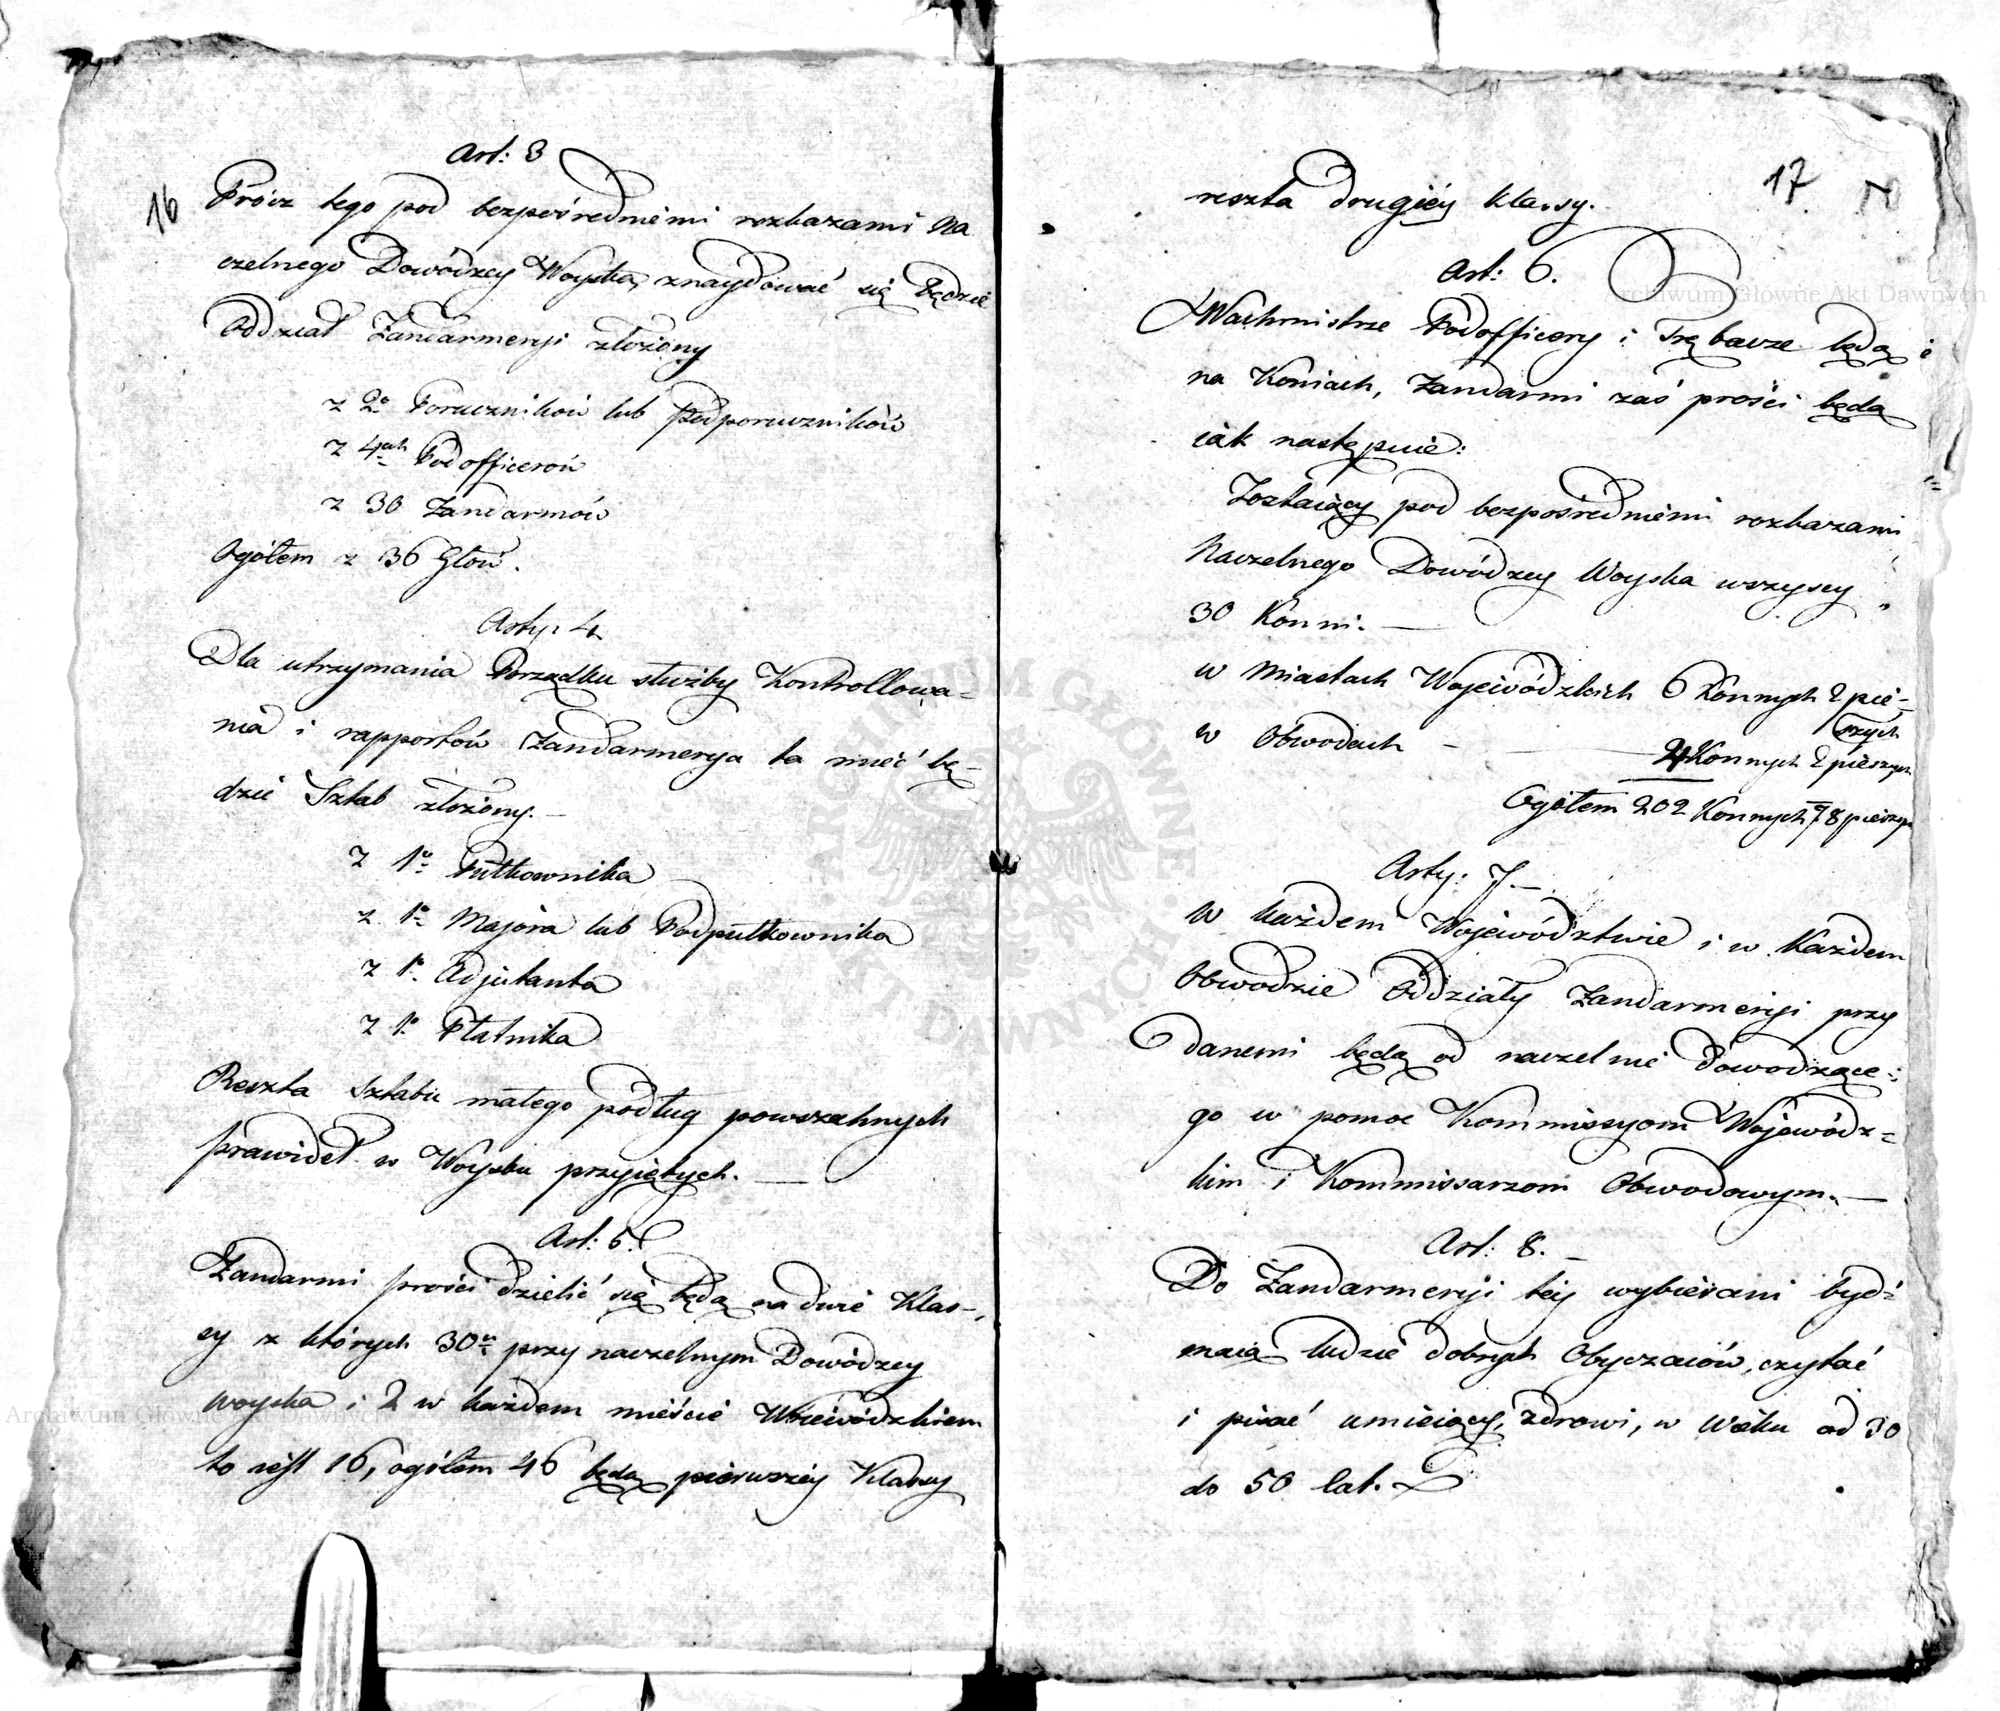 16
Art: 3
Prócz tego pod bezpośredniémi rozkazami Na
czelnego Dowódzcy Woyska, znaydować się będzie
Oddział Żandarmeryi złożony
z 2o Poruczników lub Podporuczników
z 4ech Podofficerów
z 30 Żandarmów
Ogółem z 36 Głów.
Arty: 4
Dla utrzymania Porządku służby Kontrollowa-
nia i rapportów Żandarmerya ta mieć bę-
dzie Sztab złożony.-
z 1o Pułkownika
z 1o Majora lub Podpułkownika
z 1o Adjutanta
z 1o Płatnika
Reszta Sztabu małego podług powszechnych
prawideł w Woysku przyiętych. —
Art: 5.
Żandarmi prości dzielić się będą na dwie Klas-
sy z których 30u przy naczelnym Dowódzcy
woyska i 2 w każdem mieście Woiewódzkiem
to iest 16, ogółem 46 będą pierwszéy Klassy
17
reszta drugiéy klassy.
Art: 6.
Wachmistrze Podofficery i Trębacze będą
na Koniach, Żandarmi zaś prości będą
iak następuie:
Zostaiący pod bezpośredniémi rozkazami
Naczelnego Dowódzcy Woyska wszyscy
30 Konni. —
w Miastach Wojewódzkich 6 Konnych 2 pie-
szych
w Obwodach - — 4 Konnych 2 pieszych
Ogółem 202 Konnych 78 pieszych
Arty: 7.-
W każdem Województwie i w Każdem
Obwodzie Oddziały Żandarmeryi przy
danemi będą od naczelnie Dowodzące-
go w pomoc Kommissyom Wojewódz-
kim i Kommissarzom Obwodowym. —
Art: 8. -
Do Żandarmeryi téy wybierani bydź
maią ludzie dobrych Obyczaiów, czytać
i pisać umieiący, zdrowi, w Wieku od 30
do 50 lat.
Archiwum Główne Akt Dawnych
Archiwum Główne Akt Dawnych
ARCHIWUM GŁÓWNE AKT DAWNYCH